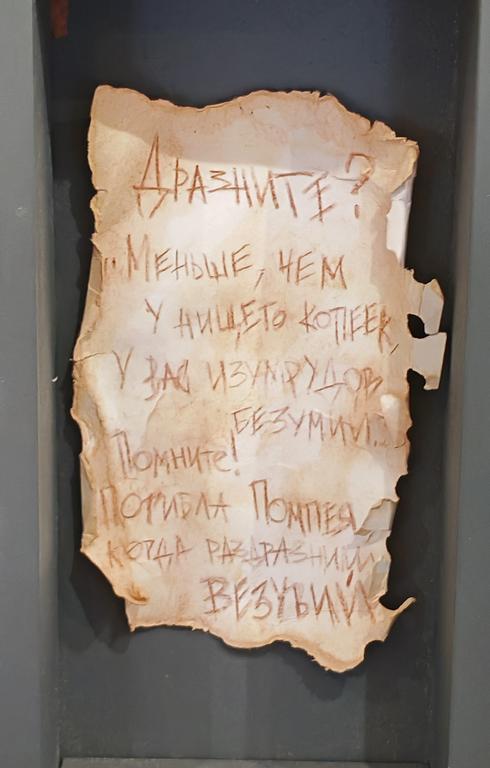 Дразните?
"Меньше, чем
у нищего копеек,
у вас изумрудов
безумий...
Помните!
Погибла Помпея,
когда раздразнили
Везувий!